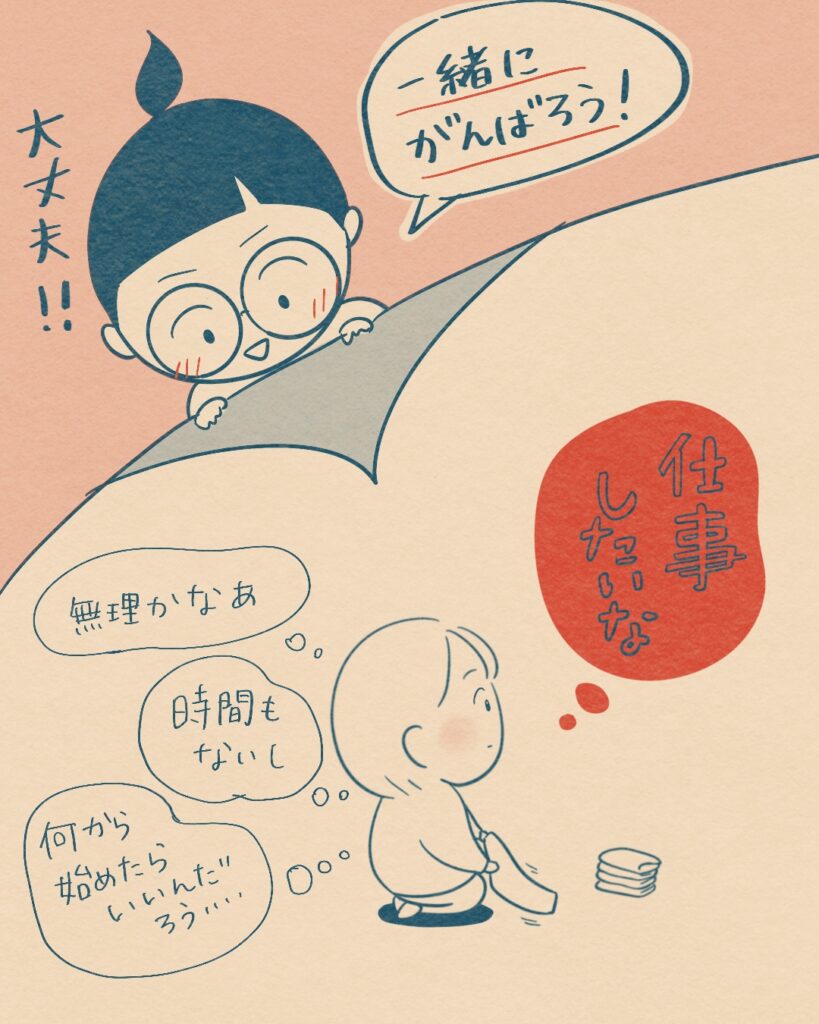 一緒に
がんばろう!
大丈夫!!
仕事
したいな
無理かなあ
時間も
ないし
何から
始めたら
いいんだ
ろう....